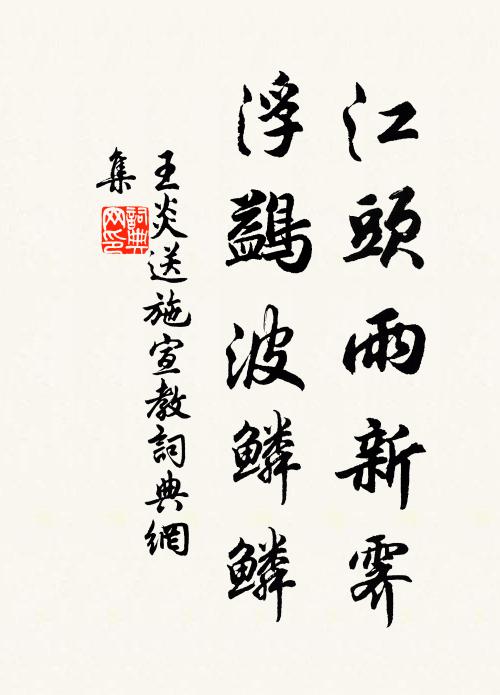 江頭雨新霽
浮鷁波鱗鱗
王炎送施宣教詞典網
集
詞典
网印